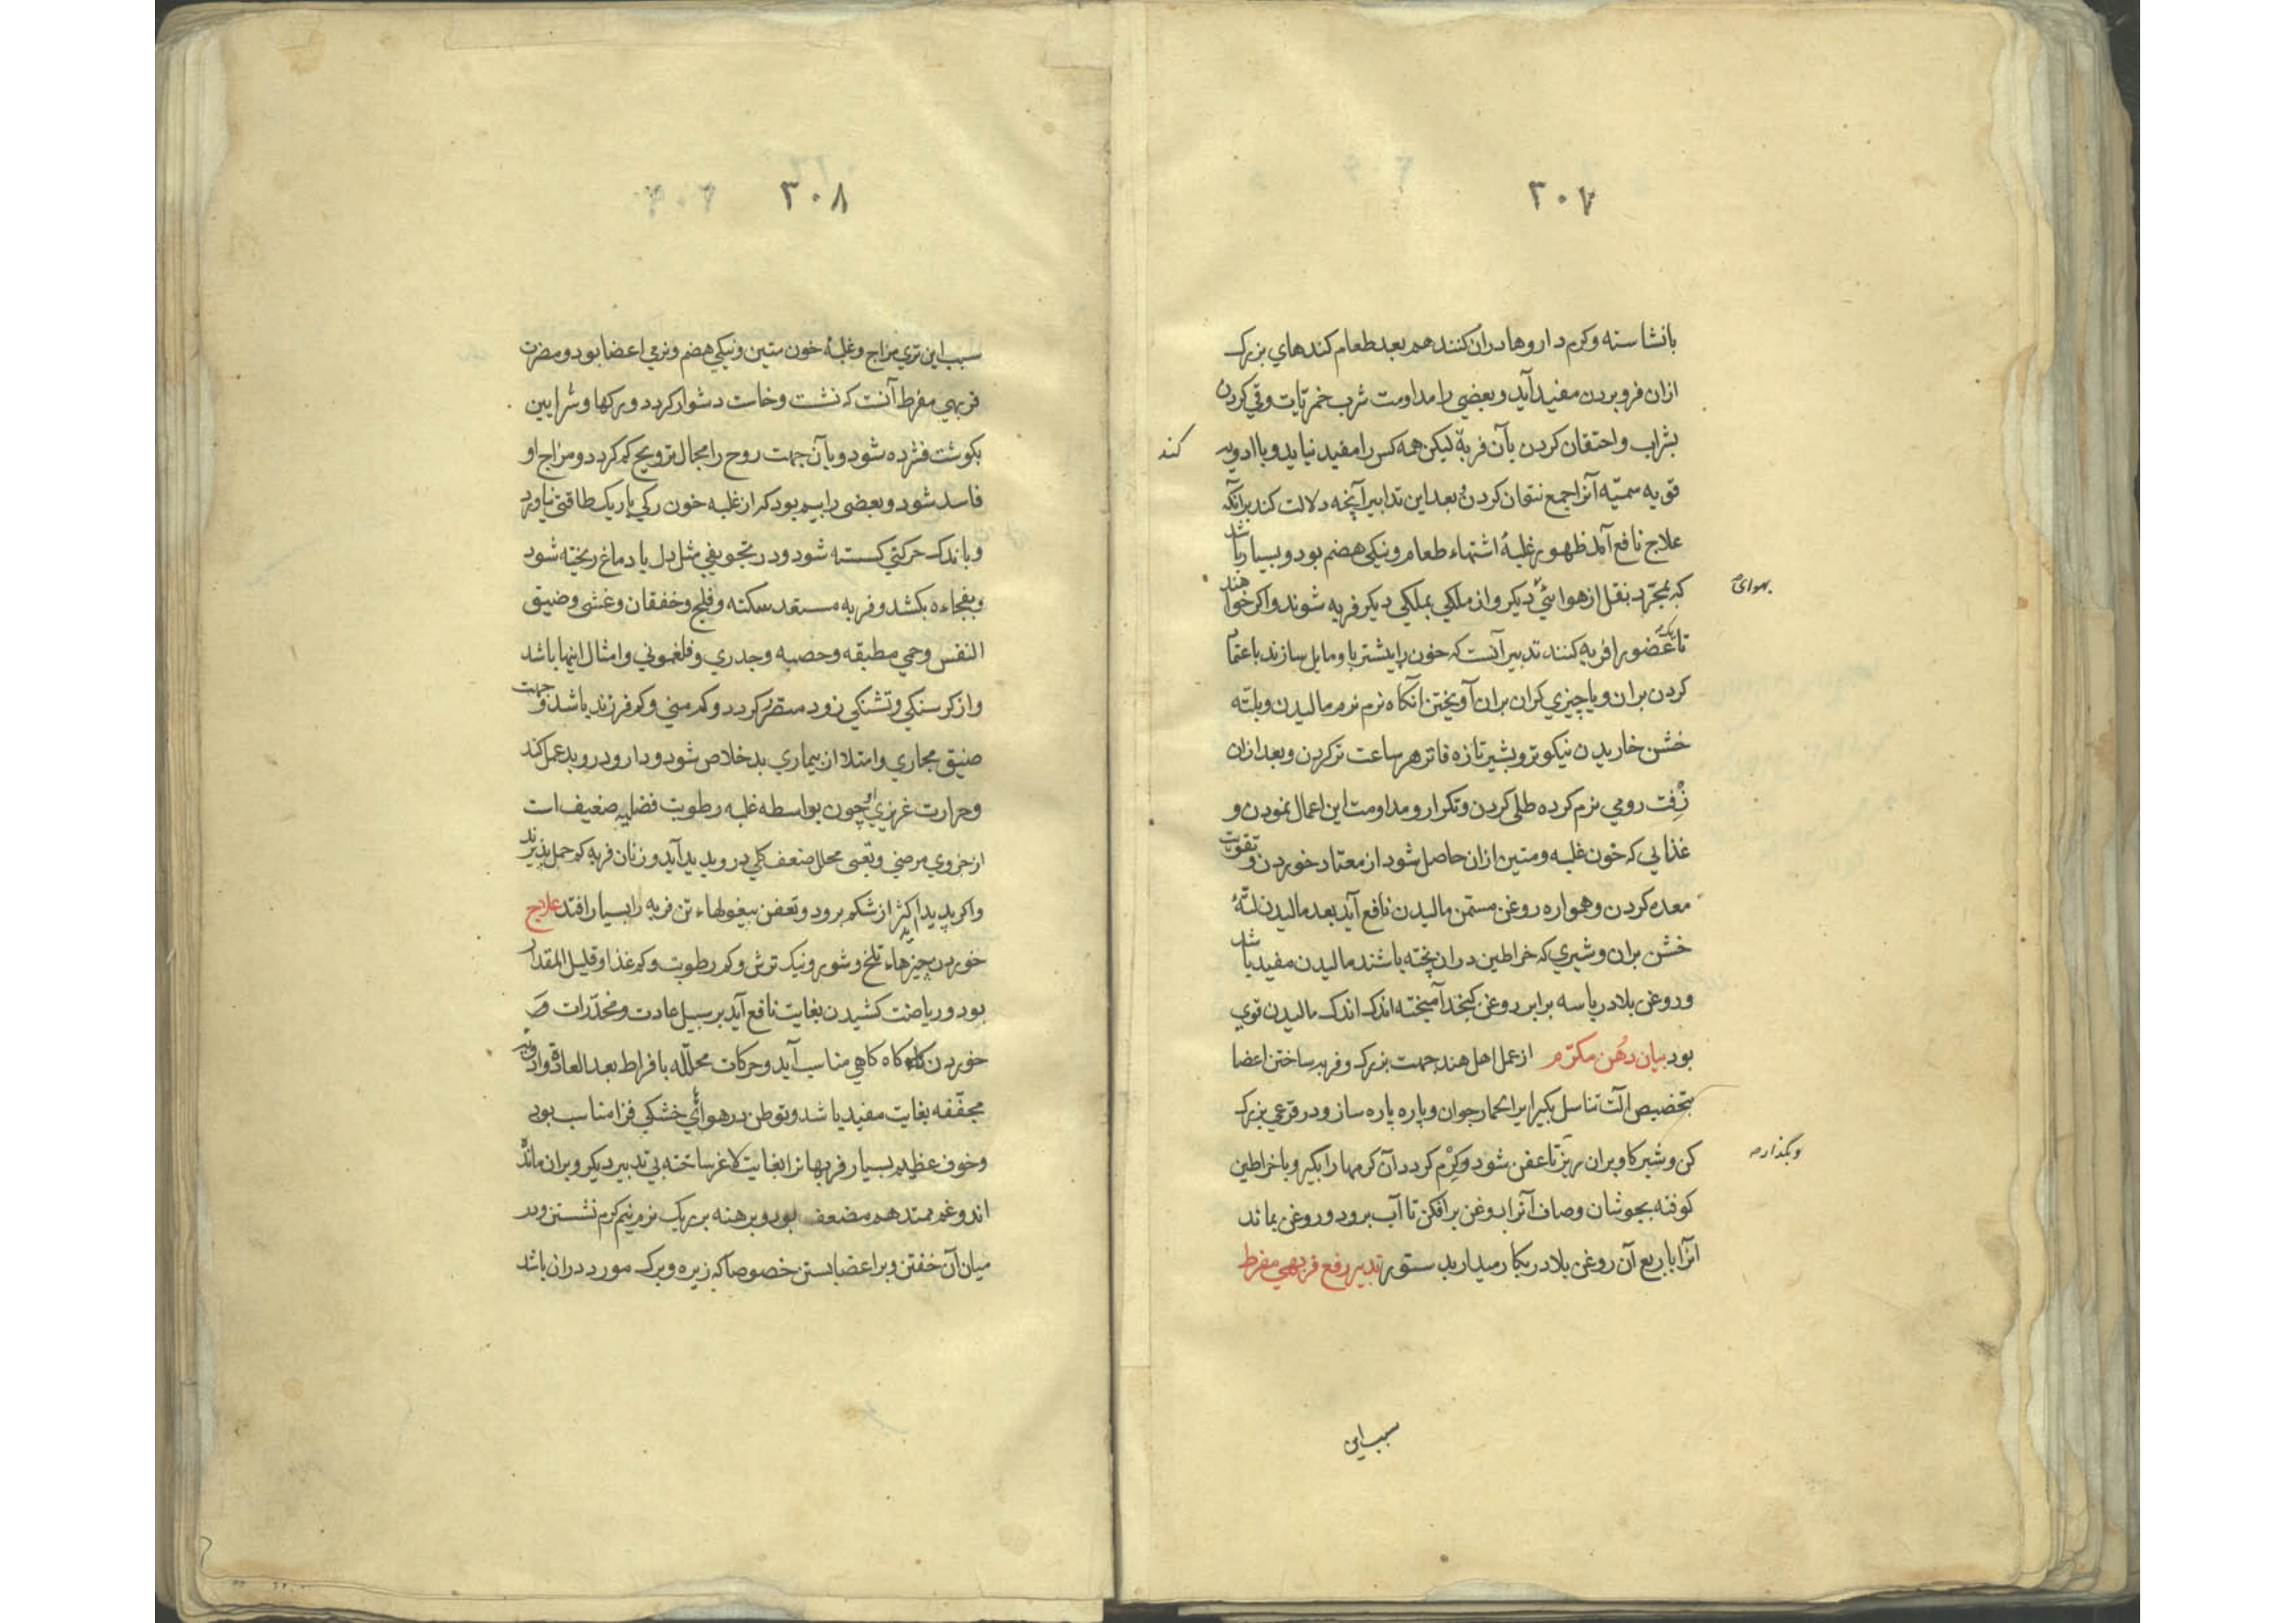 ٣٠٧
بانشاسته وکرم داروها دران کنند هم بعد طعام کندهاي بزرک
ازان فروبردن مفید آید وبعضی را مداومت شرب خمریات وقي کردن
بشراب واحتقان کردن بآن فربه لیکن همه کس را مفید نیاید وباادویه
کند
قویه سمیّه آنرا جمع نتوان کردن و بعد این تدابیر آنچه دلالت کند برآنکه
علاج نافع آمد ظهور غلبهٔ اشتهاء طعام ونیکی هضم بود وبسیار باشد
که بمجرّد نقل از هوائي دیکر واز ملکي بملکي دیکر فربه شوند واکر خواهند
بهوای
تا یک عضو را فربه کنند تدبیر آنست که خون را بیشتر باو مایل سازند باعتماد
کردن بران ویا چیزي کران بران آویختن آنکاه نرم نرم مالیدن وبلتّه
خشن خاریدن نیکوتر وبشیر تازه فاتر هر ساعت تر کردن وبعد ازان
زِفت رومي نرم کرده طلي کردن وتکرار ومداومت این اعمال نمودن و
غذایي که خون غلبه ومتین ازان حاصل شود از معتاد خوردن و تقویت
معده کردن وهمواره روغن مسمّن مالیدن نافع آید بعد مالیدن لتّهٔ
خشن بران وشیري که خراطین دران پخته باشند مالیدن مفید باشد
وروغن بلادر باسه برابر روغن کنجد آمیخته اندک اندک مالیدن قوي
بود بیان دُهن مکرّم از عمل اهل هند جهت بزرک وفربه ساختن اعضا
بتخصیص آلت تناسل بکیر ایر الحمار جوان وپاره پاره ساز ودر قرعي بزرک
کن وشیر کاو بران ریز تا عفن شود وکِرْم کردد آن کرمها را بکیر وبا خراطین
وبگذار
کوفته بجوشان وصاف آنرا بروغن برافکن تا آب برود وروغن بماند
آنرا با ربع آن روغن بلادر بکار میدار بدستور تدبیر رفع فربهي مفرط
سبب این
٣٠٨
سبب این تري مزاج وغلبهٔ خون متین ونیکي هضم ونرمي اعضا بود ومضرت
فربهي مفرط آنست که نشست وخاست دشوار کردد ورکها وشرایین
بکوشت فشرده شود وبآن جهت روح را مجال ترویح کم کردد ومزاج او
فاسد شود وبعضی را بیم بود که از غلبه خون رکي باریک طاقتي نیاورد
وباندک حرکتي کسسته شود ودر تجویفي مثل دل یا دماغ ریخته شود
وبفجاءه بکشد وفربه مستعد سکته وفلج وخفقان وغشی وضیق
النفس وحمي مطبقه وحصبه وجدري وفلغموني وامثال اینها باشد
واز کرسنکي وتشنکي زود متضرر کردد وکم مني وکم فرزند باشد و جهت
ضیق مجاري وامتلا از بیماري بد خلاص شود ودارو درو بد عمل کند
وحرارت غریزي او چون بواسطه غلبه رطوبت فضلیه ضعیف است
از خروي مرضي وتبي محلل ضعف کلي درو پدید آید وزنان فربه کم حمل پذیرند
واکر پدید آید اکثر از شکم برود وتعفن بیغولهاء تن فربه را بسیار افتد علاج
خوردن چیزهاء تلخ وشور ونیک ترش وکم رطوبت وکم غذا وقلیل المقدار
بود وریاضت کشیدن بغایت نافع آید برسبیل عادت ومخدّرات
خوردن کاه کاهي مناسب آید وحرکات محلّله بافراط بعد العادة وادویه
مجفّفه بغایت مفید باشد وتوطن در هوائي خشکي فزا مناسب بود
وخوف عظیم بسیار فربهانرا بغایت لاغر ساخته بي تدبیر دیکر وبران مانده
اند وغم ممتد هم مضعف بود وبرهنه بر ریک نرم نیم کرم نشستن ودر
میان آن خفتن وبر اعضا بستن خصوصا که زیره وبرک مورد دران باشد